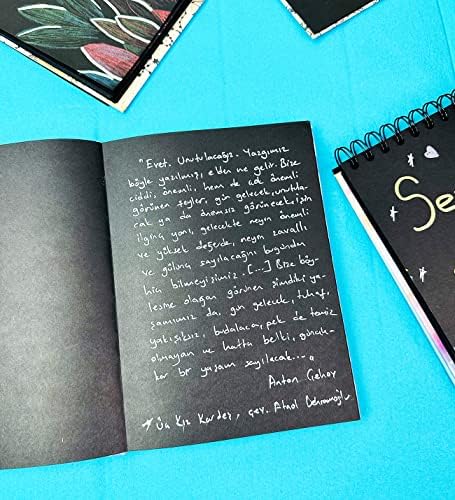 "Evet. Unutulacağız. Yazgımız
böyle yazılmış, elden ne gelir. Bize
ciddi, önemli, hem de çok önemli
görünen şeyler, gün gelecek, unutula-
cak ya da önemsiz görünecek, işin
ilginç yanı, gelecekte neyin önemli
ve yüksek değerde, neyin zavallı
ve gülünç sayılacağını bugünden
hiç bilmeyişimiz. [...] Bize böy-
lesine olağan görünen şimdiki ya-
şamımız da, gün gelecek, tuhaf,
yakışıksız, budalaca, pek de temiz
olmayan ve hatta belki, günah-
kar bir yaşam sayılacak..."
Anton Çehov
* Üç Kız Kardeş, çev. Ataol Behramoğlu
Se